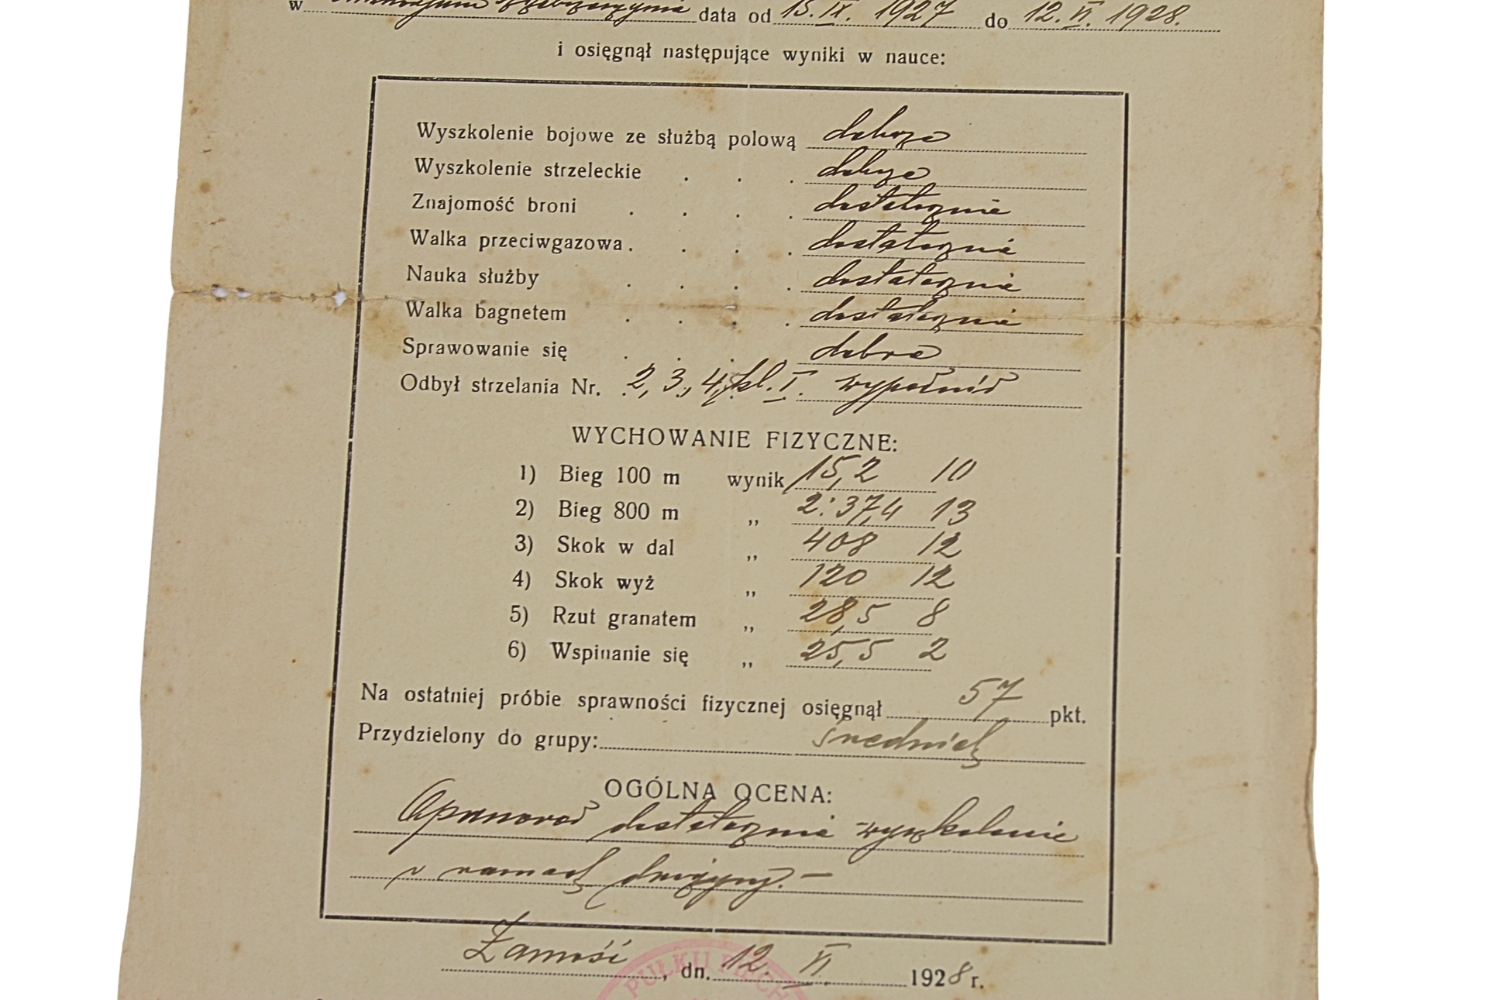 w data od 15. IX. 1927 do 12. VI. 1928.
i osięgnął następujące wyniki w nauce:
Wyszkolenie bojowe ze służbą polową dobrze
Wyszkolenie strzeleckie . . . dobrze
Znajomość broni . . . . dostatecznie
Walka przeciwgazowa . . . . dostatecznie
Nauka służby . . . . dostatecznie
Walka bagnetem . . . . dostatecznie
Sprawowanie się . . . dobre
Odbył strzelania Nr. 2, 3, 4, kl. I. wypełnił
WYCHOWANIE FIZYCZNE:
1) Bieg 100 m wynik 15,2 10
2) Bieg 800 m „ 2:37,4 13
3) Skok w dal „ 408 12
4) Skok wyż „ 120 12
5) Rzut granatem „ 28,5 8
6) Wspinanie się „ 25,5 2
Na ostatniej próbie sprawności fizycznej osięgnął 57 pkt.
Przydzielony do grupy: średniej
OGÓLNA OCENA:
Opanował dostatecznie wyszkolenie
w ramach drużyny. —
Zamość, dn. 12. VI 1928 r.
PUŁKU PIECH